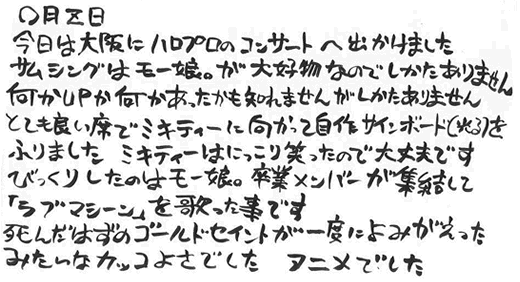 ○月×日
今日は大阪にハロプロのコンサートへ出かけました
サムシングはモー娘。が大好物なのでしかたありません
何かUPか何かあったかも知れませんがしかたありません
とても良い席でミキティーに向かって自作サインボード(光る)を
ふりました ミキティーはにっこり笑ったので大丈夫です
びっくりしたのはモー娘。卒業メンバーが集結して
「ラブマシーン」を歌った事です
死んだはずのゴールドセイントが一度によみがえった
みたいなカッコよさでした アニメでした